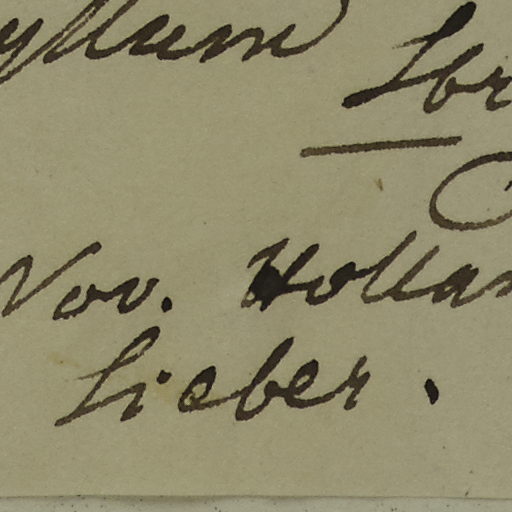 yllum Lbr
Nov. Hollan
Sieber.